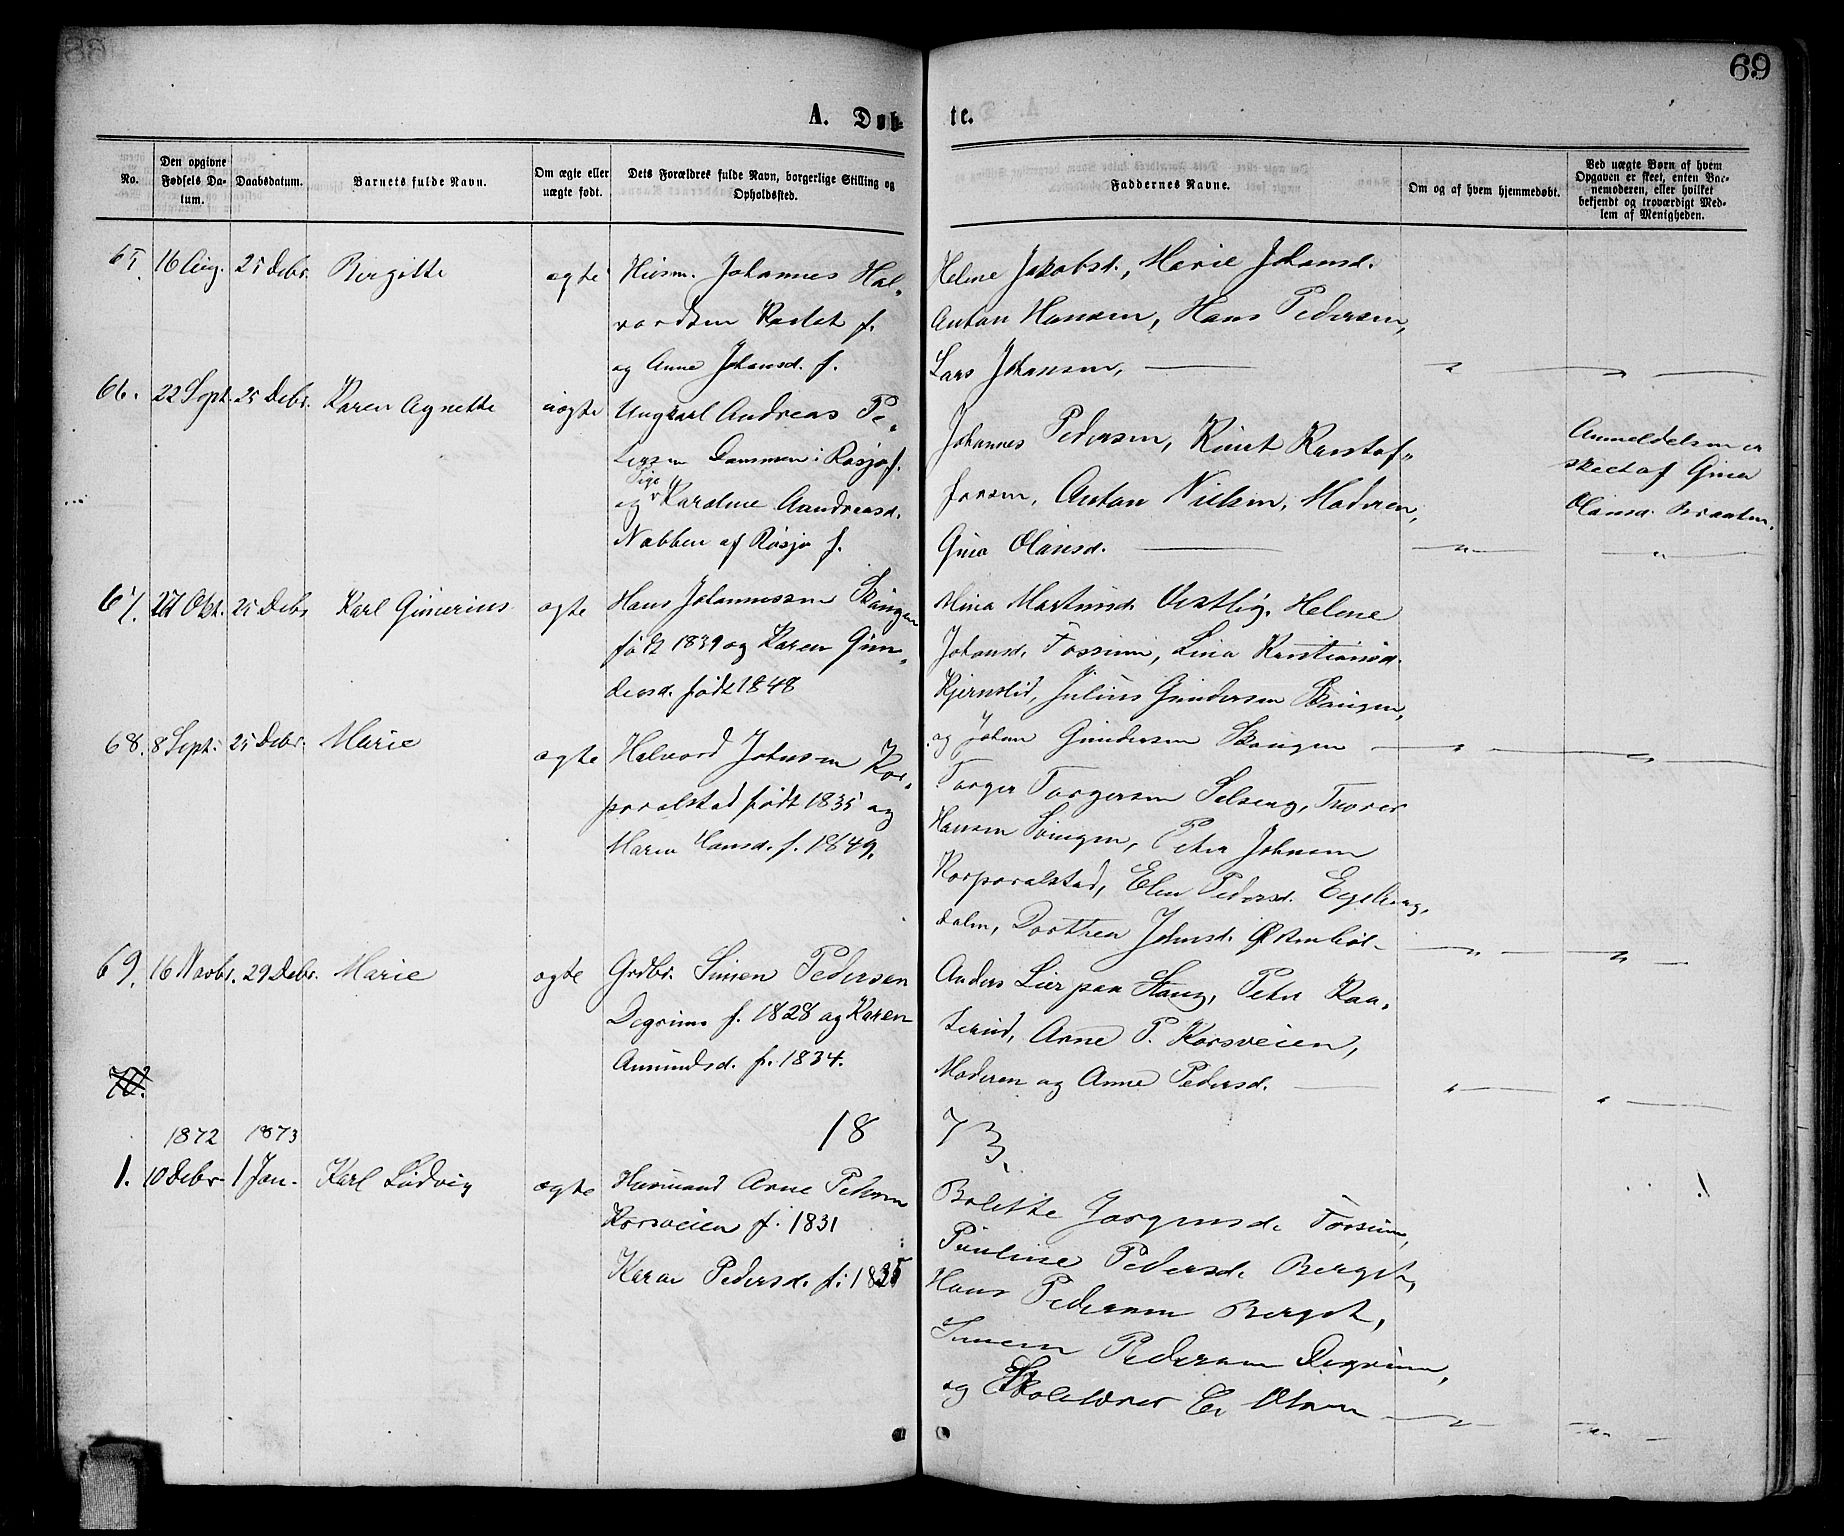 69
A. Døb-
te.
No.
Den opgivne Fødsels Da-tum.
Daabsdatum.
Barnets fulde Navn.
Om ægte eller uægte født.
Dets Forældres fulde Navn, borgerlige Stilling og Opholdssted.
Faddernes Navne.
Om og af hvem hjemmedøbt.
Ved uægte Børn af hvem Opgaven er skeet, enten Bar-nemoderen, eller hvilket bekjendt og troværdigt Med-lem af Menigheden.
65. 16 Aug. 25 Debr. Birgitte ægte Husm. Johannes Hal-
vordsen Rastat f.
og Anne Johansd. f.
Helene Jakobsd., Marie Johansd.
Anton Hansen, Hans Pedersen,
Lars Johansen, — " — " —
66. 22 Sept. 25 Debr. Karen Agnette uægte Ungkarl Andreas Pe-
dersen Dammen i Røsjø f.
og Pige Karoline Aandreasd.
Nabben af Røsjø f.
Johannes Pedersen, Knut Kristof-
fersen, Anton Nielsen, Moderen,
Gina Olausd. — " — " —
Anmeldelsen er
skeet af Gina
Olausd. Braaten.
67. 27 Okt. 25 Debr. Karl Gunerius ægte Hans Johannessen Skaugen
født 1839 og Karen Gun-
dersd. født 1848
Mina Martinsd. Vestlig, Helene
Johansd. Fossum, Lina Kristiansd.
Kjernslid, Julius Gundersen Skaugen,
og Johan Gundersen Skaugen — " — " —
68. 8 Sept. 25 Debr. Marie ægte Halvord Johnsen Kor-
poralstad født 1835 og
Maren Hansd. f. 1849.
Torger Torgersen Selseng, Thorer
Hansen Svingen, Peter Johnsen
Korporalstad, Elen Pedersd. Engelberg,
dalen, Dorthea Johnsd. Østenbøl — " — " —
69. 16 Novbr. 29 Debr. Marie ægte Grdbr. Simen Pedersen
Degrum f. 1828 og Karen
Amundsd. f. 1834.
Anders Lier paa Haug, Peter Raa-
terud, Arne P. Korsveien,
Moderen og Anne Pedersd. — " — " —
70.
1872 1873 18
73.
1. 10 Debr. 1 Jan. Karl Ludvig ægte Husmand Arne Pedersen
Korsveien f. 1831
Karen Pedersd. f. 1835
Bolette Jørgensd. Fossum,
Pauline Pedersd. Bergst,
Hans Pedersen Bergst,
Simen Pedersen Degrum,
og Skolelærer E. Olsen — " — " —